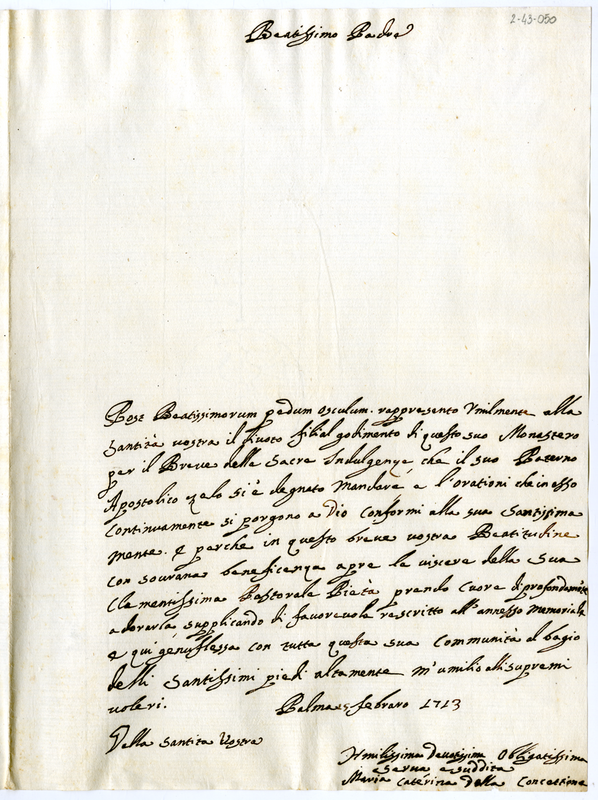 2-43-050
Beatissimo Padre
Post Beatissimorum pedum osculum. rappresento Vmilmente alla
Santità vostra il diuoto filial godimento di questo suo Monastero
per il Breve delle Sacre Indulgenze, che il suo Paterno
Apostolico zelo si è degnato Mandare, e l'orationi che in esso
Continuamente si porgono a Dio Conformi alla sua Santissima
mente. e perche in questo breve vostra Beatitudine
con sourana beneficenza apre le viscere della Sua
Clementissima Pastorale Pietà prendo Cuore di profondamte
adorarla, supplicando di fauoreuole rescritto all'annesso memoriale
e qui genuflessa con tutta questa sua Communità al bagio
delli Santissimi piedi altamente m'umilio alli supremi
voleri. Palma febraro 1713
Della Santità Vostra
Humilissima Deuotissima Obligatissima
Serua e suddita
Maria Caterina della Concettione